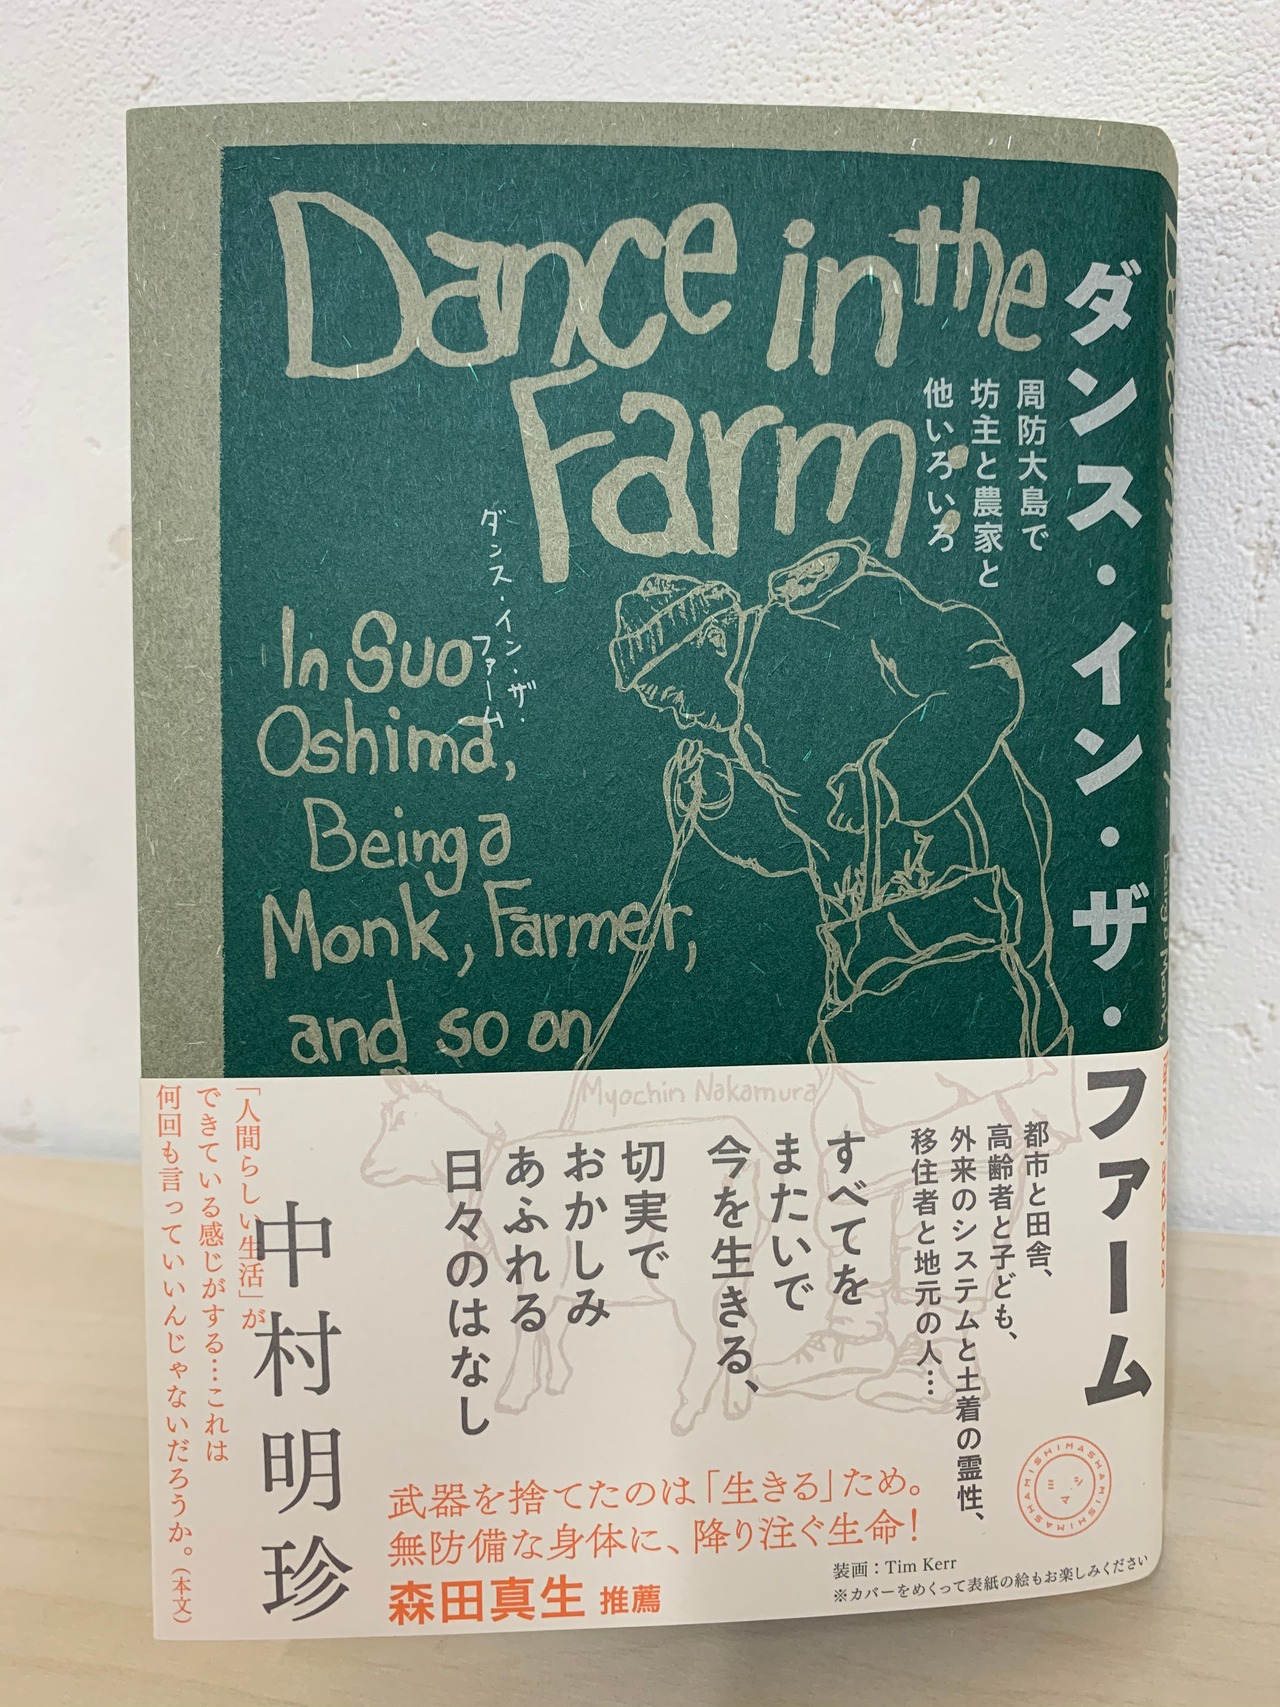 Dance in the
Farm:
ダンス・イン・ザ・ファーム
周防大島で
坊主と農家と
他いろいろ
ダンス・イン・ザ・
ファーム
In Suo
Oshima,
Being a
Monk, Farmer,
and so on
Myochin Nakamura
都市と田舎、
高齢者と子ども、
外来のシステムと土着の霊性、
移住者と地元の人…
すべてを
またいで
今を生きる、
切実で
おかしみ
あふれる
日々のはなし
中村明珍
「人間らしい生活」が
できている感じがする…これは
何回も言っていいんじゃないだろうか。(本文)
武器を捨てたのは「生きる」ため。
無防備な身体に、降り注ぐ生命!
森田真生 推薦
装画:Tim Kerr
※カバーをめくって表紙の絵もお楽しみください
MISHIMASHAMISHIMASHA
ミシマ